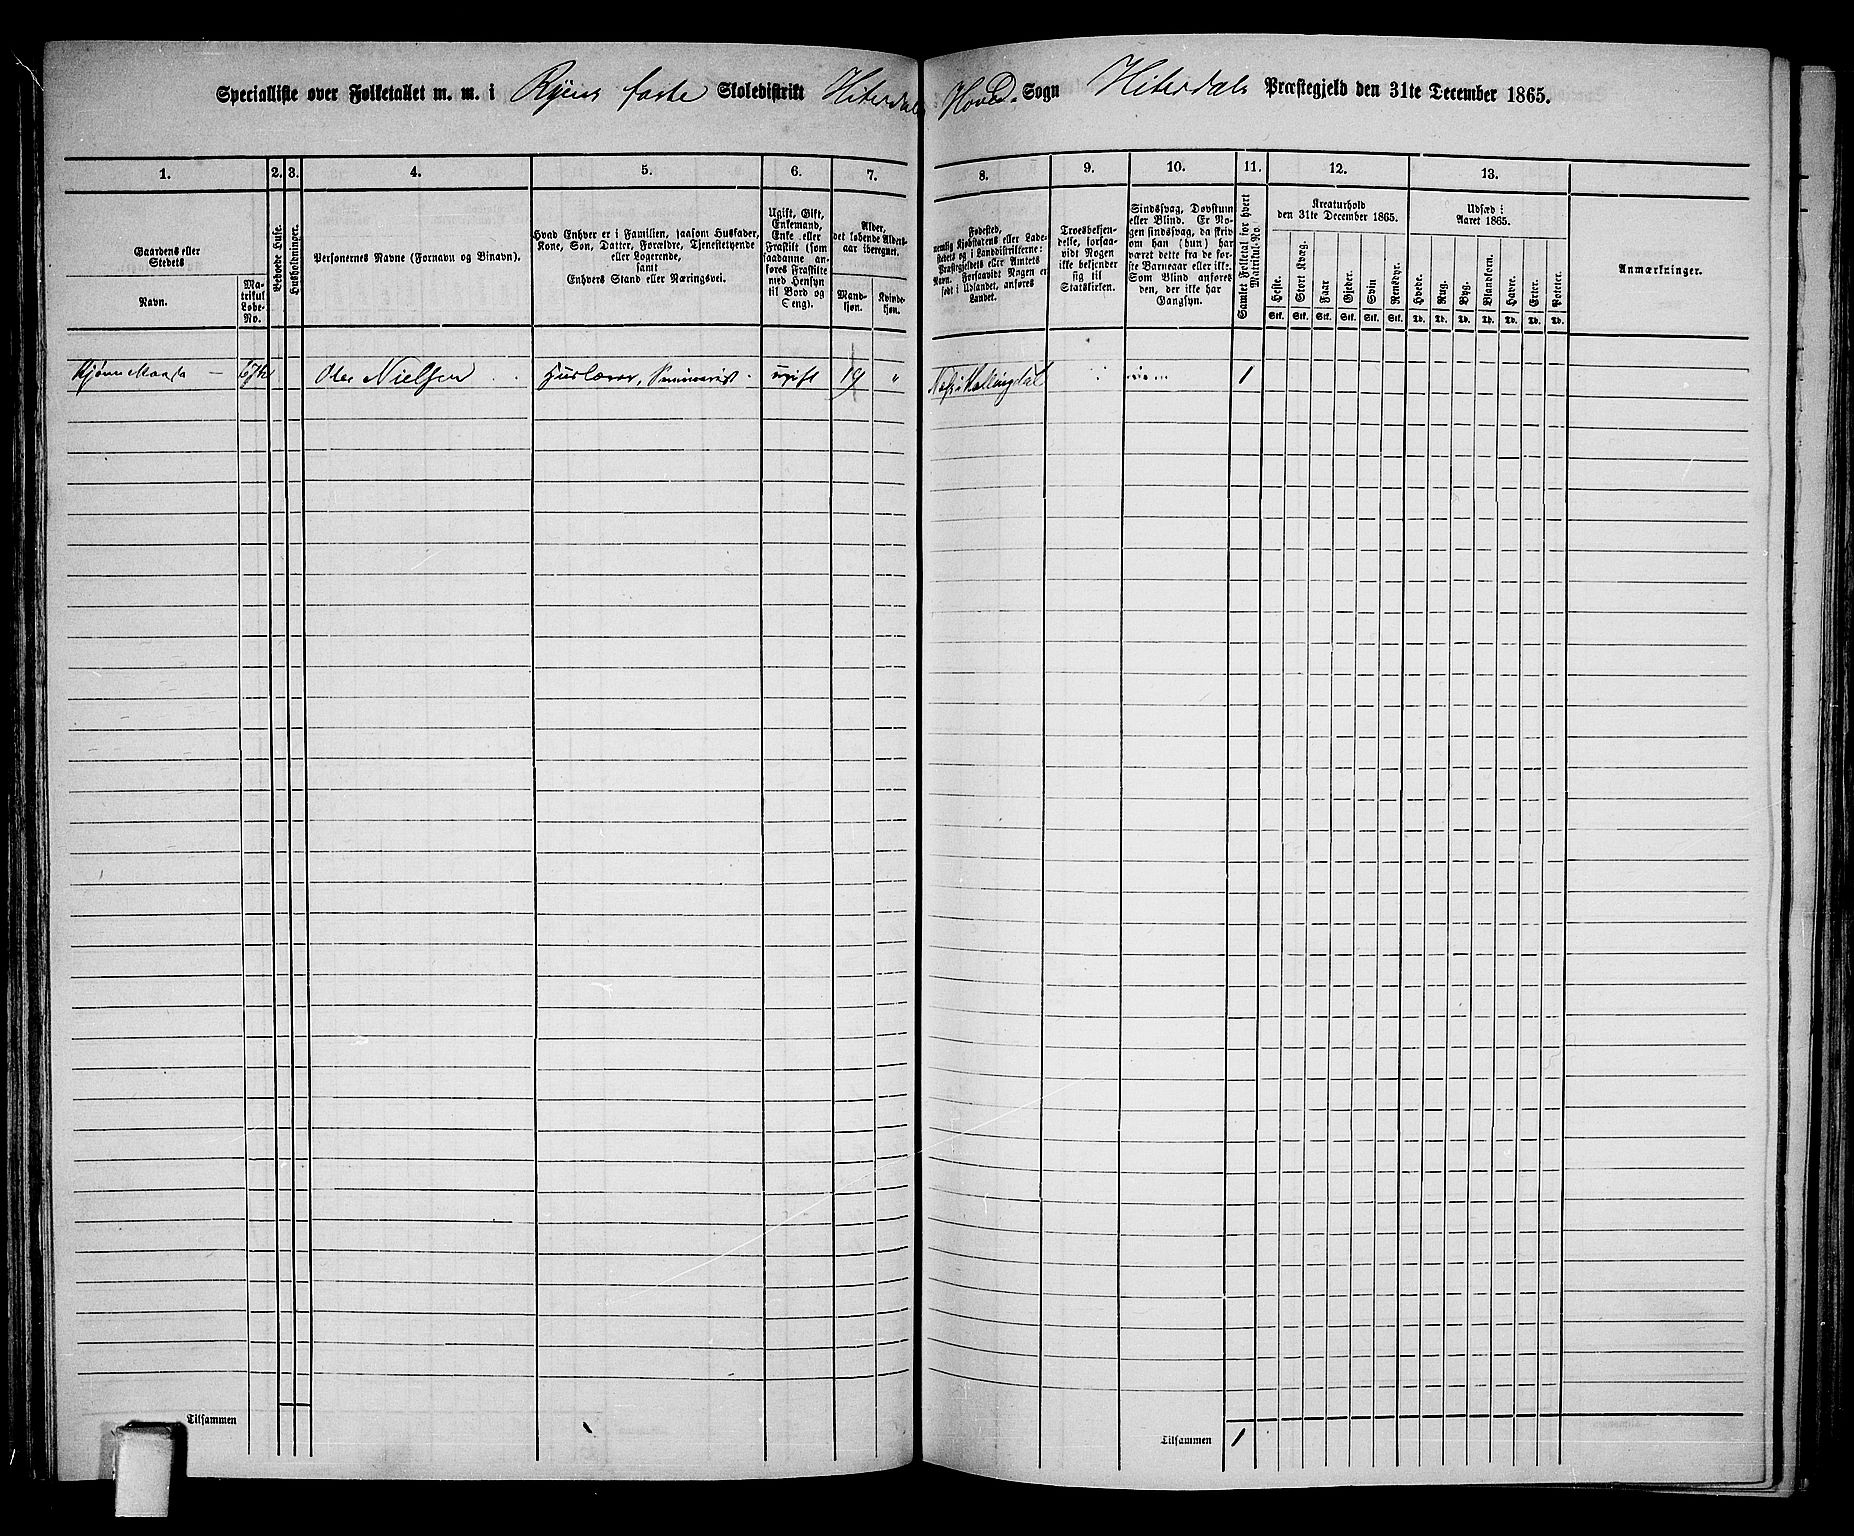 Specialliste over Folketallet m. m. i Ryens faste Skoledistrikt Hiterdals Hoved- Sogn Hiterdals Præstegjeld den 31te December 1865.
1.
2.
3.
4.
5.
6.
7.
8.
9.
10.
11.
12.
13.
Gaardens eller
Stedets
Navn.
Ma-
trikul
Løbe-
No.
Beboede Huse.
Husholdninger.
Personernes Navne (Fornavn og Binavn).
Hvad Enhver er i Familien, saasom Husfader,
Kone, Søn, Datter, Forældre, Tjenestetyende
eller Logerende,
samt
Enhvers Stand eller Næringsvei.
Ugift, Gift,
Enkemand,
Enke eller
Fraskilt (som
saadanne an-
føres Fraskilte
med Hensyn
til Bord og
Seng).
Alder,
det løbende Alders-
aar iberegnet.
Mand-
kjøn.
Kvinde-
kjøn.
Fødested,
nemlig Kjøbstadens eller Lade-
stedets og i Landdistrikterne:
Præstegjeldets eller Amtets
Navn. Forsaavidt Nogen er
født i Udlandet, anføres
Landet.
Troesbekjen-
delse, forsaa-
vidt Nogen
ikke bekjender
sig til
Statskirken.
Sindssvag, Døvstum
eller Blind. Er No-
gen sindssvag, da skriv
om han (hun) har
været dette fra de før-
ste Barneaar eller ikke.
Som Blind anføres
den, der ikke har
Gangsyn.
Samlet Folketal for hvert
Matrikul-No.
Kreaturhold
den 31te December 1865.
Heste.
Stort Kvæg.
Faar
Gjeder.
Svin
Rensdyr.
Stk. Stk. Stk. Stk. Stk. Stk.
Udsæd i
Aaret 1865.
Hvede.
Rug.
Byg.
Blandkorn.
Havre.
Erter.
Poteter.
Td. Td. Td. Td. Td. Td. Td.
Anmærkninger.
Ole Nielsen Huslærer, Seminarist ugift 19 " Næs i Hallingdal 1
Tilsammen
Tilsammen 1